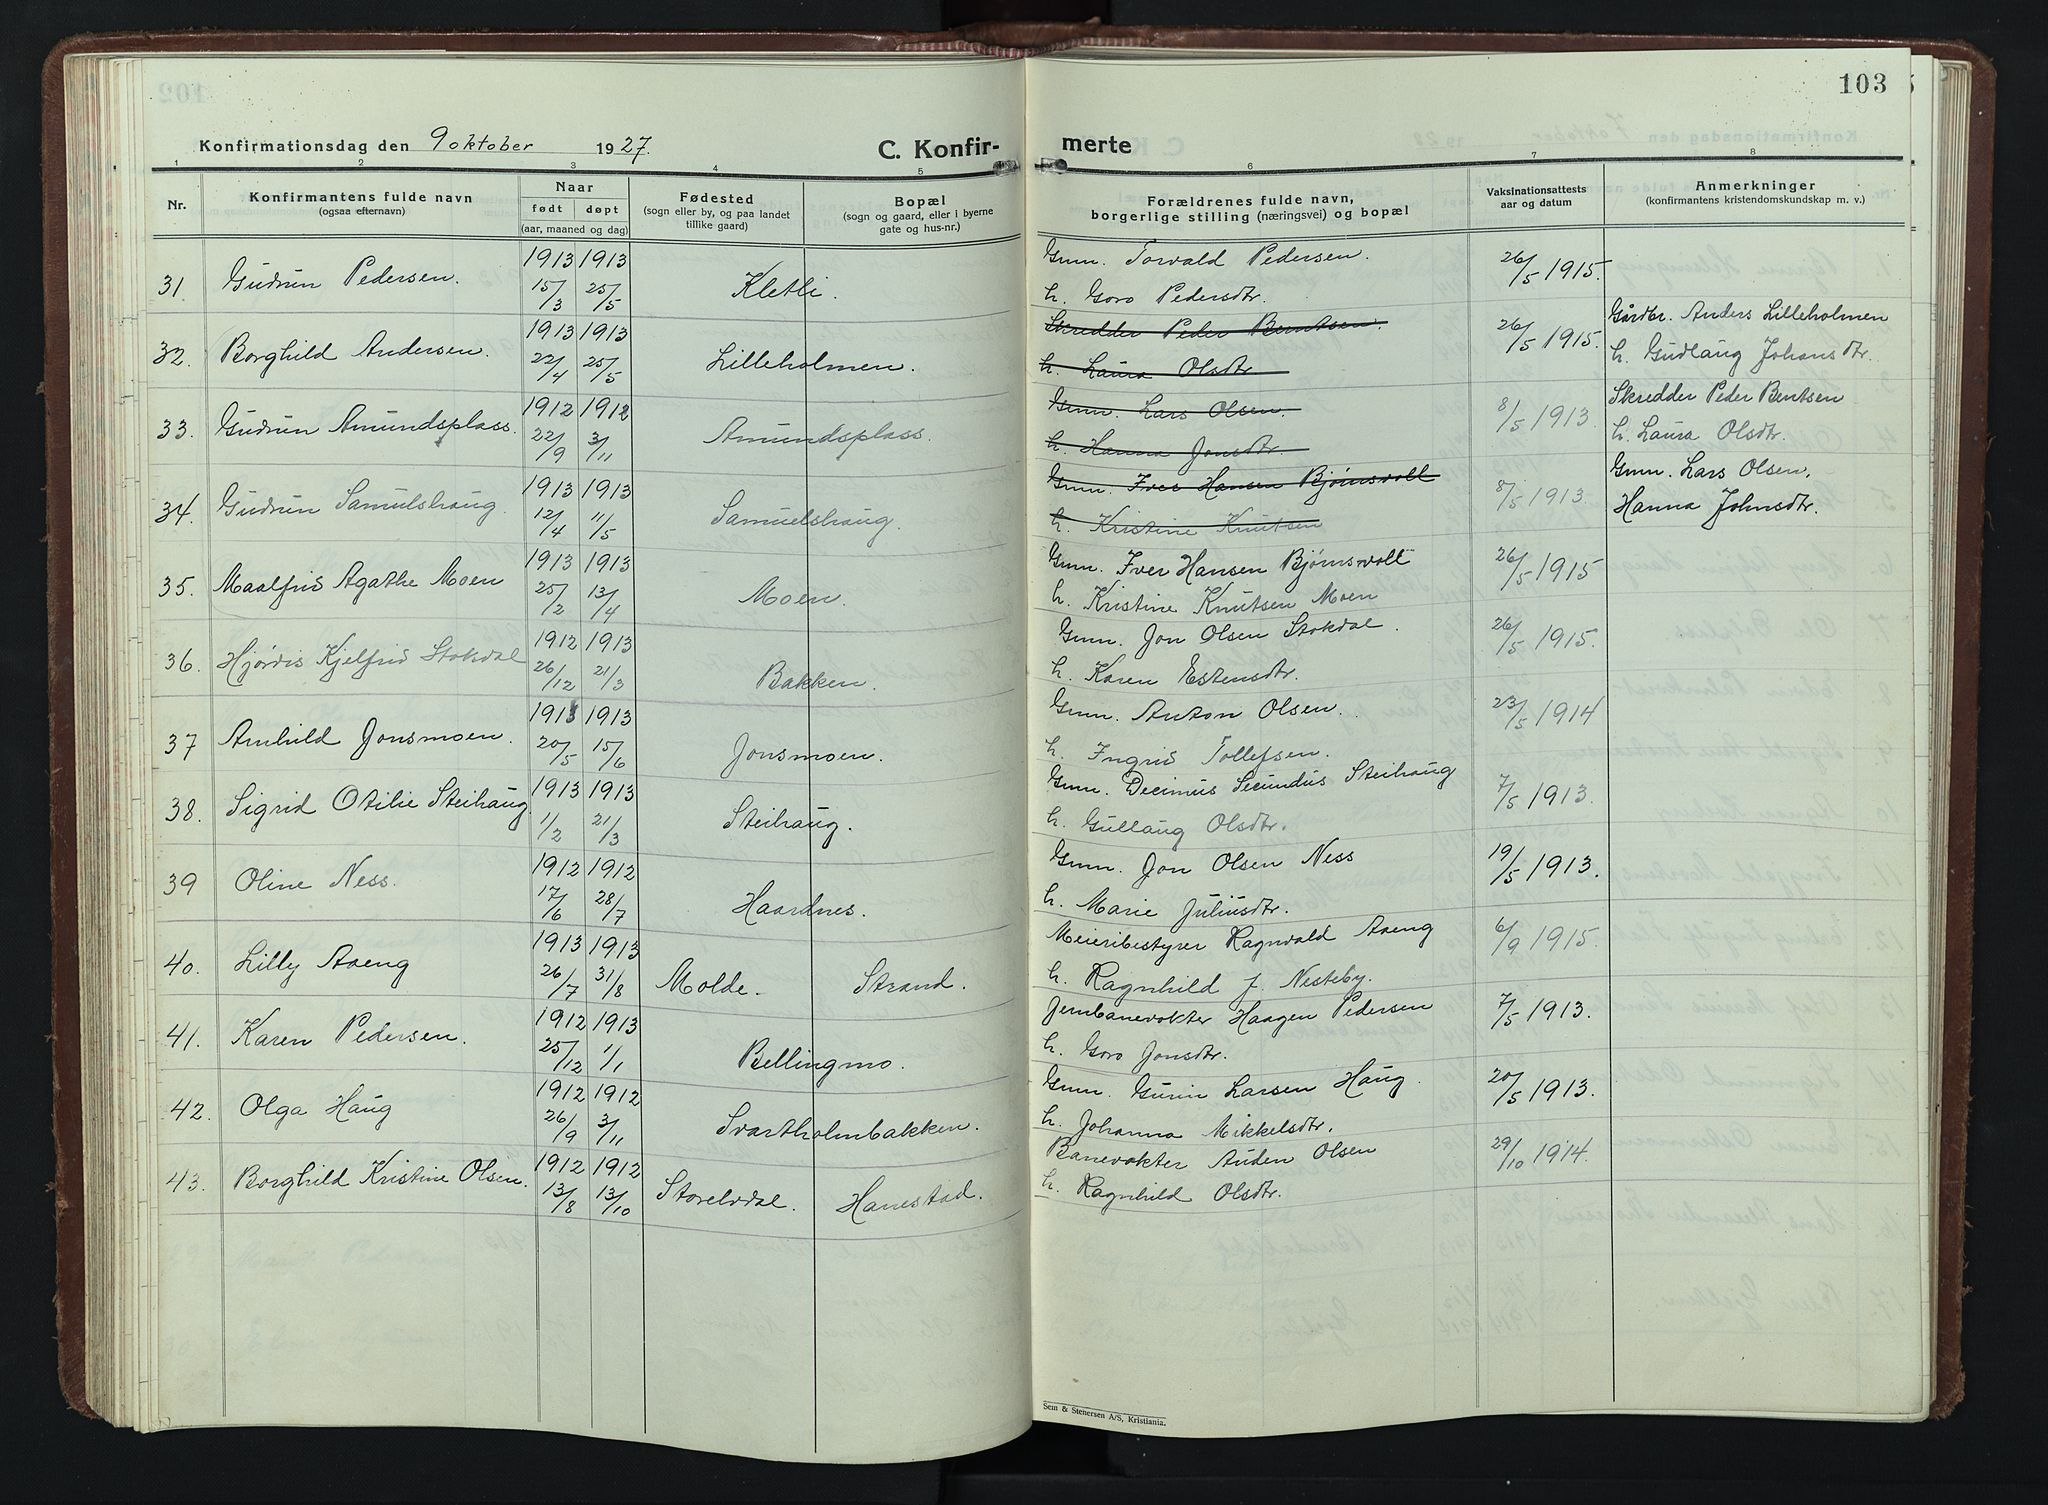 103
Konfirmationsdag den 9 oktober 1927.
C. Konfir-
merte
1 2 3 4 5 6 7 8
Nr.
Konfirmantens fulde navn
(ogsaa efternavn)
Naar
født døpt
(aar, maaned og dag)
Fødested
(sogn eller by, og paa landet
tillike gaard)
Bopæl
(sogn og gaard, eller i byerne
gate og hus-nr.)
Forældrenes fulde navn,
borgerlige stilling (næringsvei) og bopæl
Vaksinationsattests
aar og datum
Anmerkninger
(konfirmantens kristendomskundskap m. v.)
31 Gudrun Pedersen. 1913 15/3 1913 25/5 Kletli. Gmn. Torvald Pedersen. 26/5 1915.
h. Goro Pedersdtr.
32. Borghild Andersen. 1913 22/4 1913 25/5 Lilleholmen. Skredder Peder Berntsen. 26/5 1915. Gårdbr. Anders Lilleholmen
h. Laura Olsdtr h. Gudlaug Johansdtr.
33. Gudrun Amundsplass. 1912 22/9 1912 3/11 Amundsplass. Gmn. Lars Olsen. 8/5 1913. Skredder Peder Bentsen
h. Hanna Jonsdtr. h. Laura Olsdtr.
34. Gudrun Samulshaug. 1913 12/4 1913 11/5 Samuelshaug. Gmn. Iver Hansen Bjørnsvoll 8/5 1913. Gmn. Lars Olsen,
h. Kristine Knutsen Hanna Johnsdtr.
35. Maalfrid Agathe Moen 1913 25/2 1913 13/4 Moen. Gmn. Iver Hansen Bjørnsvoll 26/5 1915
h. Kristine Knutsen Moen
36. Hjørdis Kjelfrid Stokdal 1912 26/12 1913 21/3 Bakken. Gmn. Jon Olsen Stokdal. 26/5 1915.
h. Karen Estensdtr.
37 Arnhild Jonsmoen. 1913 20/5 1913 15/6 Jonsmoen. Gmn. Anton Olsen. 23/5 1914
h. Ingrid Tollefsen.
38. Sigrid Otilie Steihaug. 1913 1/2 1913 21/3 Steihaug. Gmn. Decimus Secundus Steihaug 7/5 1913.
h. Gullaug Olsdtr.
39 Oline Ness. 1912 17/6 1912 28/7 Haardnes. Gmn. Jon Olsen Ness 19/5 1913.
h. Marie Juliusdtr.
40. Lilly Aaeng 1913 26/7 1913 31/8 Molde. Strand. Meieribestyrer Ragnvald Aaeng 6/9 1915.
h. Ragnhild J. Nesteby.
41. Karen Pedersen. 1912 25/12 1913 1/1 Bellingmo. Jernbanevokter Haagen Pedersen 7/5 1913.
h. Goro Jonsdtr.
42. Olga Haug 1912 26/9 1912 3/11 Svartholmbakken. Gmn. Gunn Larsen Haug. 20/5 1913.
h. Johanna Mikkelsdtr.
43. Borghild Kristine Olsen. 1912 13/8 1912 13/10 Storelvdal. Hanestad. Banevokter Auden Olsen 29/10 1914.
h. Ragnhild Olsdtr.
Sem & Stenersen A/S, Kristiania.